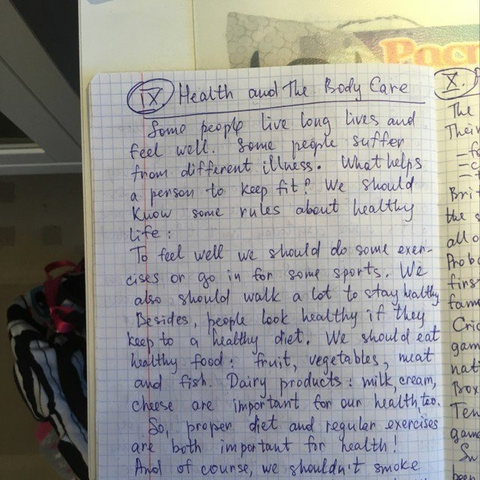 IX. Health and The Body Care
Some people live long lives and
feel well. Some people suffer
from different illness. What helps
a person to keep fit? We should
know some rules about healthy
life:
To feel well we should do some exer-
cises or go in for some sports. We
also should walk a lot to stay healthy.
Besides, people look healthy if they
keep to a healthy diet. We should eat
healthy food: fruit, vegetables, meat
and fish. Dairy products: milk, cream,
cheese are important for our health, too.
So, proper diet and regular exercises
are both important for health!
And of course, we shouldn't smoke
X.
The
Their
Brit
the s
all o
Proba
first
fam
Cric
gam
nat
Box
Ten
game
Sw
been